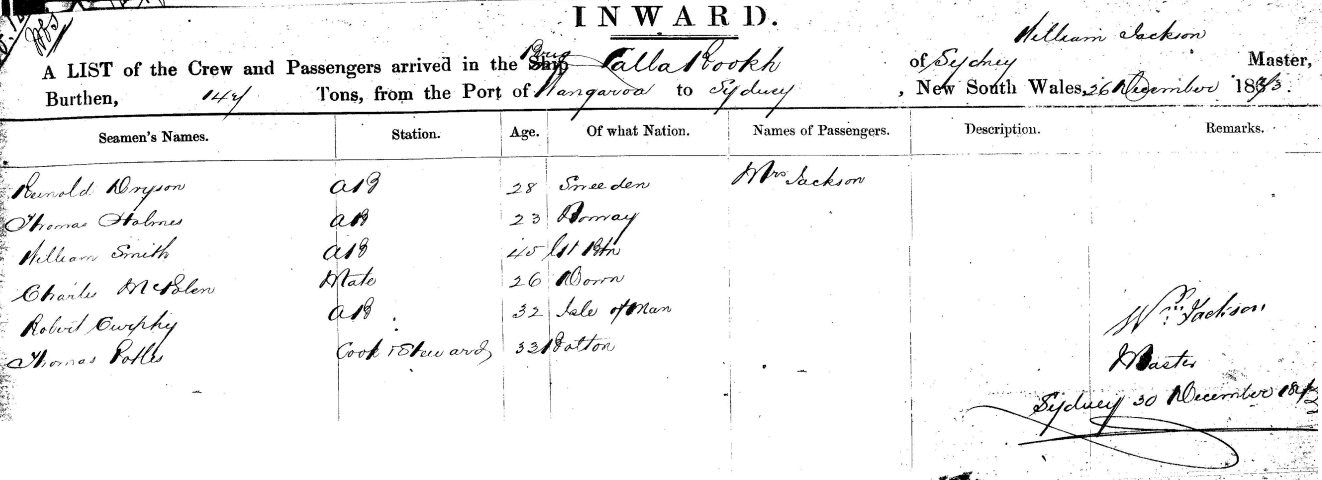 INWARD.
William Jackson
A LIST of the Crew and Passengers arrived in the Ship Brig Lalla Rookh of Sydney Master,
Burthen, 147 Tons, from the Port of Wangaroa to Sydney, New South Wales, 26 December 1843.
Seamen's Names. Station. Age. Of what Nation. Names of Passengers. Description. Remarks.
Dryson AB 28 Sweeden Mrs Jackson
Thomas Holmes AB 23 Norway
William Smith AB 45
Charles Mate 26 Down
Robert Curphy AB 32 Isle of Man
Thomas Cook & Steward 33
Wm Jackson
Master
Sydney 30 December 1843